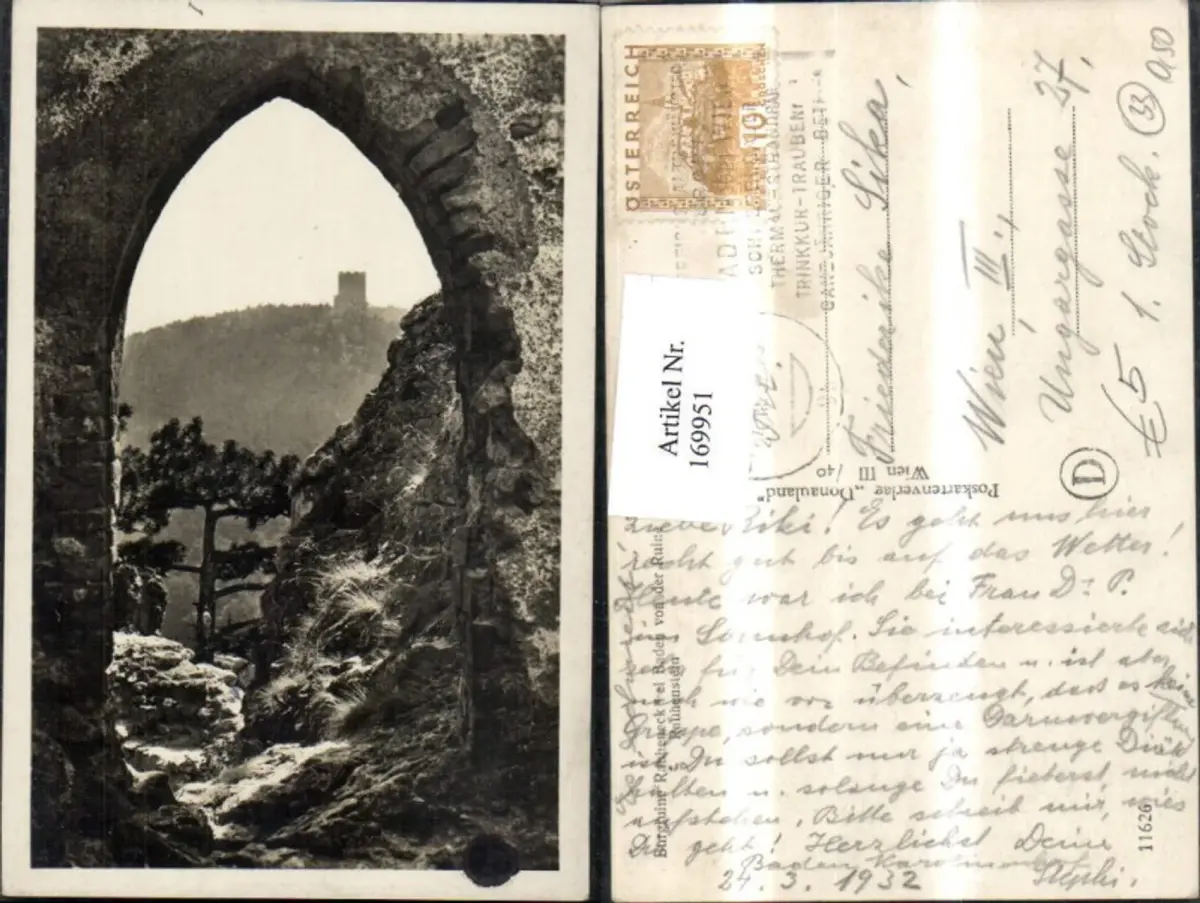 ÖSTERREICH
10
BADEN BEI WIEN
THERMAL-STRANDBAD
TRINKKUR-TRAUBEN
GANZJÄHRIGER BETR
Friederike Sika,
Wien, III.,
Ungargasse 27,
1. Stock.
33
0,50
€5
D
Artikel Nr.
169951
Poskartenverlag „Donauland"
Wien III /40
Burgruine Rauheneck bei Baden von der Ruine
Rauhenstein
11626
Liebe Riki! Es geht uns hier
recht gut bis auf das Wetter!
Heute war ich bei Frau Dr P.
im Sonnhof. Sie interessierte sich
sehr für Dein Befinden u. ist aber
nach wie vor überzeugt, dass es keine
Grippe, sondern eine Darmvergiftung
ist. Du sollst nur ja strenge Diät
halten u. solange Du fieberst, nicht
aufstehen. Bitte schreib mir, wies
Dir geht! Herzlichst Deine
Stephi.
Baden
24. 3. 1932